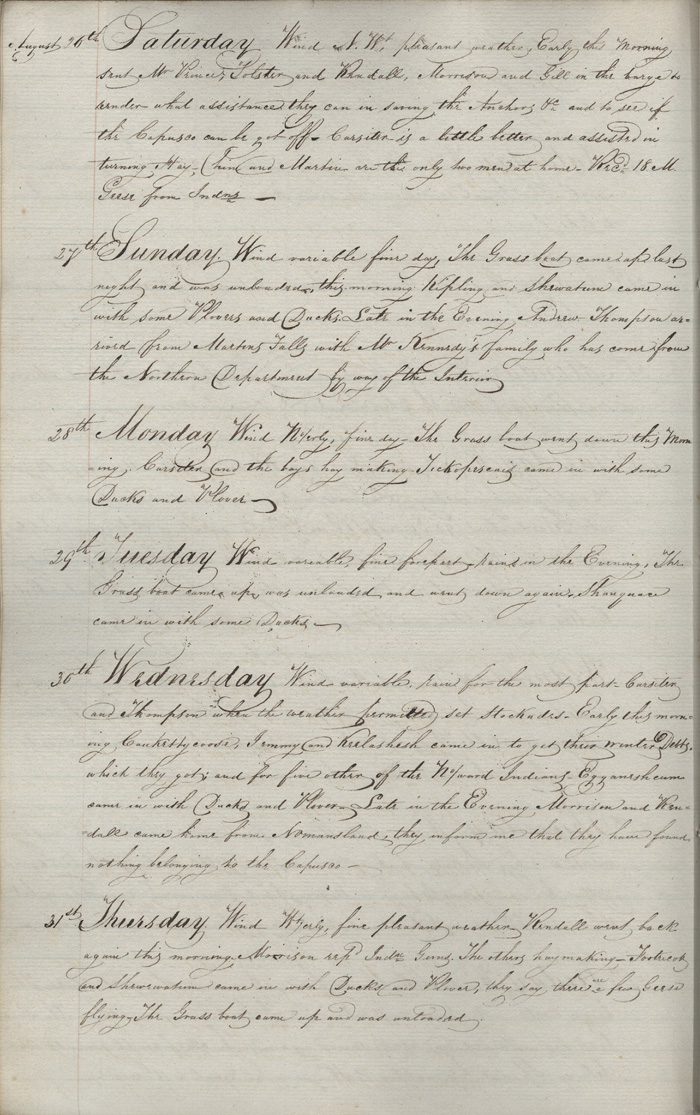 August 26th Saturday Wind N. Wt, pleasant weather, Early this Morning
sent Mr Vincer, Folster and Kendall, Morrison and Gill in the barge to
render what assistance they can in saving the Anchors &c and to see if
the Capusco can be got off - Corsiter is a little better and assisted in
turning Hay, and Martin are the only two men at home - Recd 18 M
Geese from Indns -
27th Sunday. Wind variable fine day, The Grass boat came up last
night and was unloaded, this morning Kipling and Shewatum came in
with some Plovers and Ducks. Late in the Evening Andrew Thompson ar-
rived from Martins Falls with Mr Kennedy's family who has come from
the Northern Department by way of the Interior
28th Monday Wind N°erly, fine day - The Grass boat went down this Morn
-ing, Corsiter and the boys hay making. came in with some
Ducks and Plover -
29th Tuesday Wind variable, fine forepart - rains in the Evening, The
Grass boat came up, was unloaded and went down again. Shauguace
came in with some Ducks -
30th Wednesday Wind variable, rain for the most part - Corsiter
and Thompson when the weather permitted, set Stockades - Early this morn-
ing, Jemmy and Keelashesh came in to get their winter Debts,
which they got, and for five other of the No'ward Indians
came in with Ducks and Plover - Late in the Evening Morrison and Ken-
dall came home from Nomansland, they inform me that they have found
nothing belonging to the Capusco -
31st Thursday. Wind Wterly, fine pleasant weather - Kendall went back
again this morning. Morrison repg Indn Guns. The others haymaking -
and Shewatum came in with Ducks and Plover, they say there are few Geese
flying. The Grass boat came up and was unloaded.